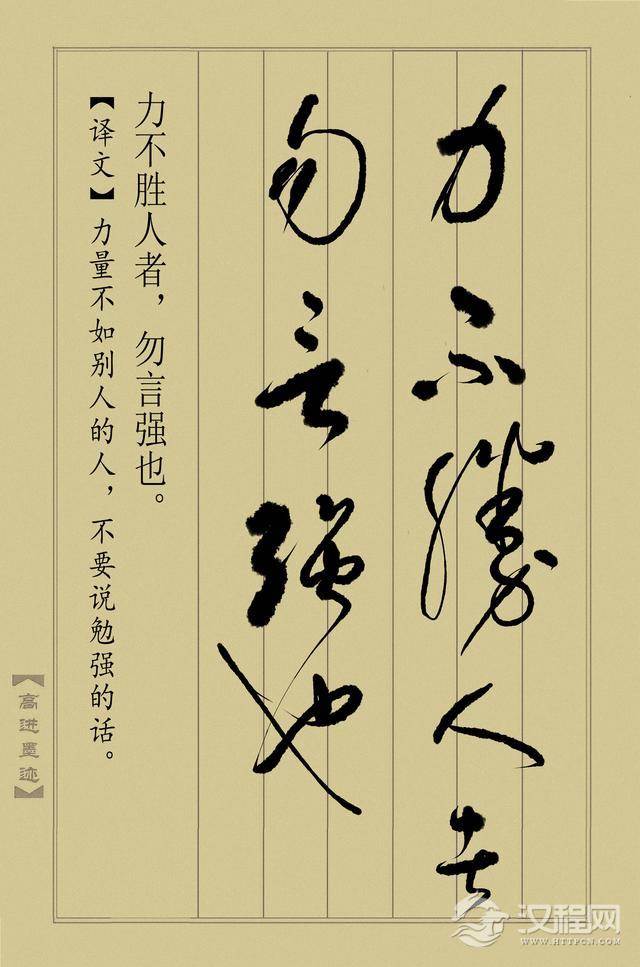 力不勝人者
勿言強也
力不胜人者，勿言强也。
【译文】力量不如别人的人，不要说勉强的话。
【高进墨迹】
汉程网
WWW.HTTPCN.COM